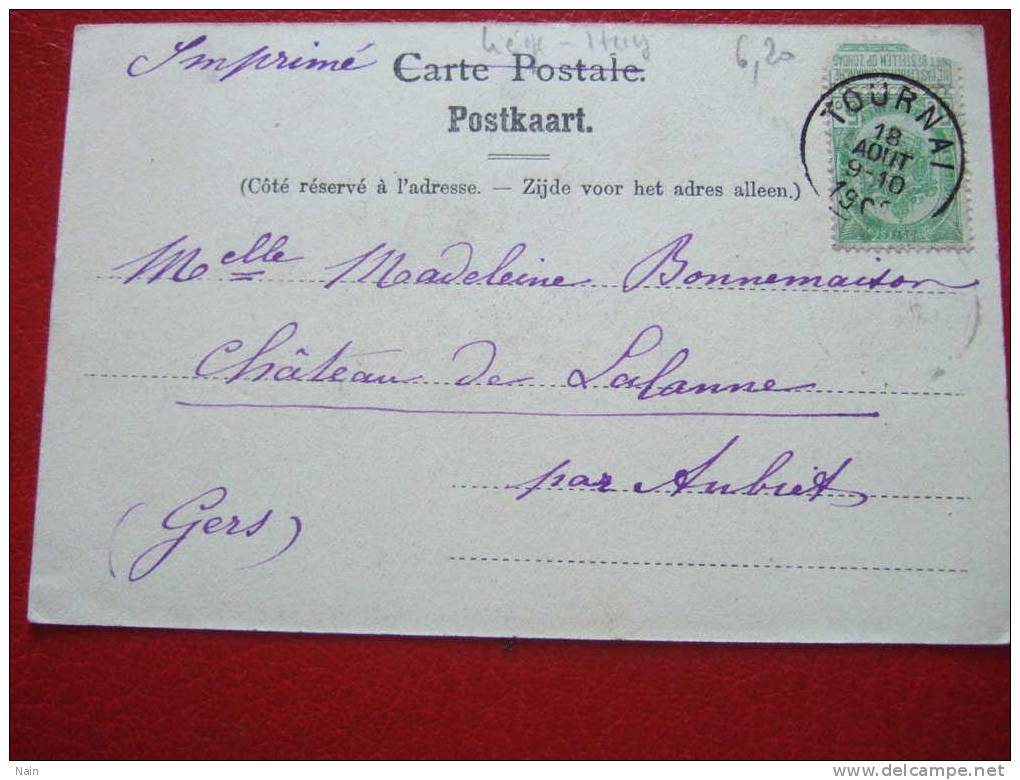 Liège - Huy
6,20
Imprimé
Carte Postale.
Postkaart.
(Côté réservé à l'adresse. — Zijde voor het adres alleen.)
NIET BESTELLEN OP ZONDAG
TOURNAI
18
AOUT
9-10
Melle Madeleine Bonnemaison
Château de Lalanne
par Aubiet
(Gers)
Nain
www.delcampe.net